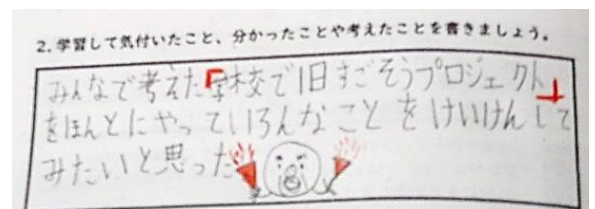 2. 学習して気付いたこと、分かったことや考えたことを書きましょう。
みんなで考えた「学校で1日すごそうプロジェクト」
をほんとにやっていろんなことをけいけんして
みたいと思った